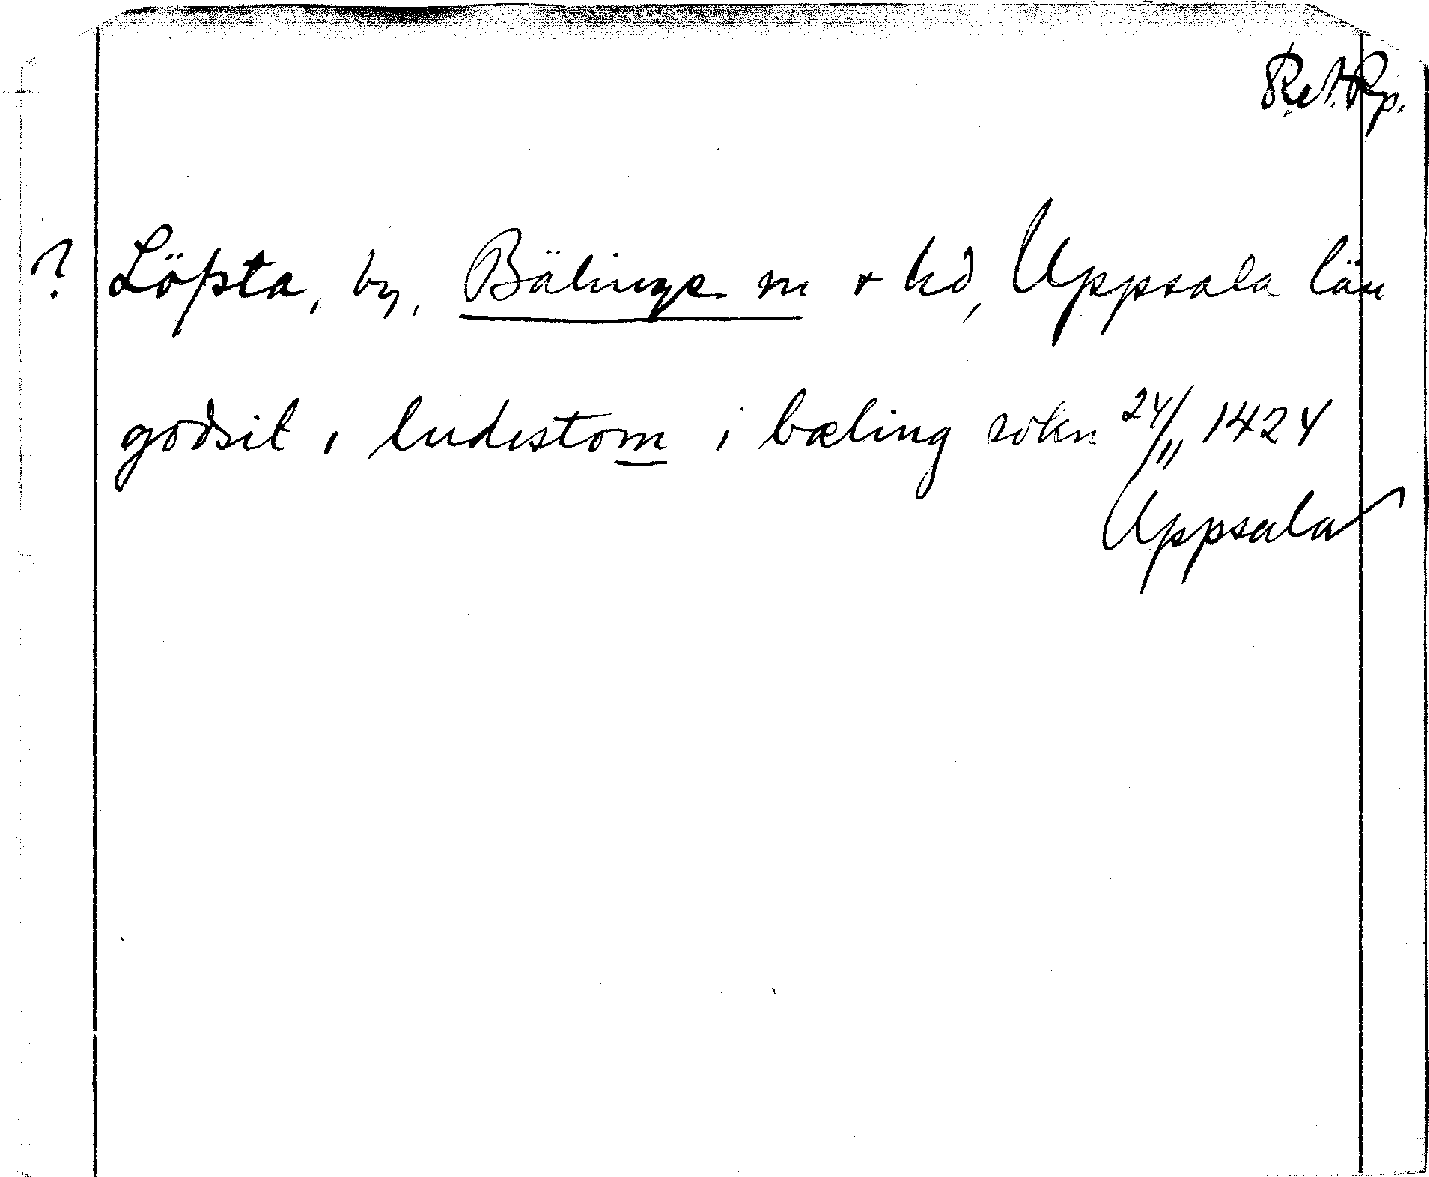 ? Löpsta, by, Bälinge sn o hd, Uppsala län
godsit i ludestom i bæling sokn 24/11 1424
Uppsala